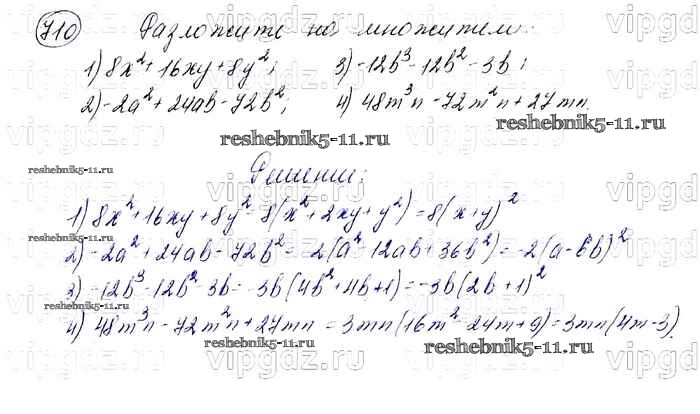 710 Разложите на множители:
1) 8x²+16xy+8y²; 3) -12b³-12b²-3b;
2) -2a²+24ab-72b²; 4) 48m³n-72m²n+27mn.
reshebnik5-11.ru
reshebnik5-11.ru
Решение:
reshebnik5-11.ru
1) 8x²+16xy+8y²=8(x²+2xy+y²)=8(x+y)²
2) -2a²+24ab-72b²=-2(a²-12ab+36b²)=-2(a-6b)²
3) -12b³-12b²-3b=-3b(4b²+4b+1)=-3b(2b+1)²
4) 48m³n-72m²n+27mn=3mn(16m²-24m+9)=3mn(4m-3)
reshebnik5-11.ru
reshebnik5-11.ru
reshebnik5-11.ru
vipgdz.ru